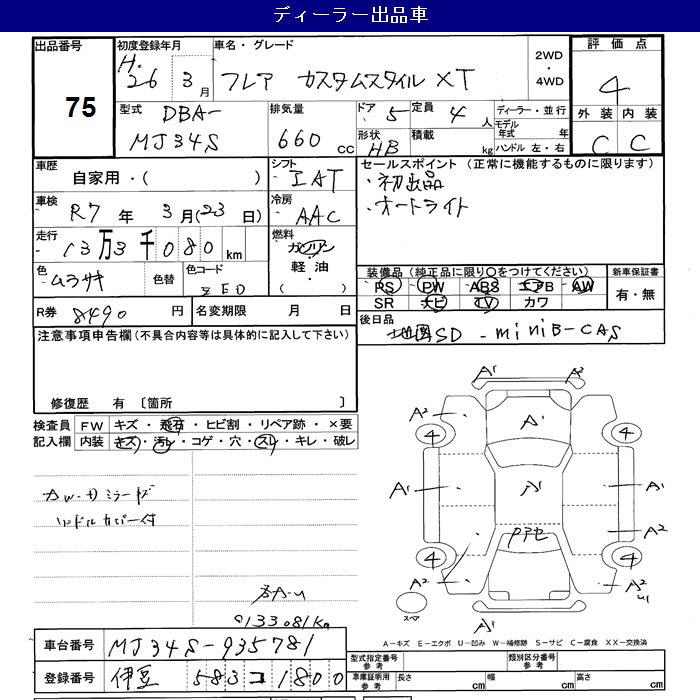 ディーラー出品車
出品番号 初度登録年月 車名・グレード 2WD・4WD 評価点
75 H.26年3月 フレア カスタムスタイル XT 4
型式 DBA- 排気量 ドア 5 定員 4人 ディーラー・並行 外装 内装
MJ34S 660cc 形状 HB 積載 kg モデル年式 年 ハンドル 左・右 C C
車歴 自家用・( ) シフト IAT セールスポイント (正常に機能するものに限ります)
・初出品
車検 R7年3月(23日) 冷房 AAC ・オートライト
走行 13万3千080km 燃料 ガソリン 軽油 ( )
色 ムラサキ 色替 色コード ZED 装備品 (純正品に限り○をつけてください) 新車保証書
PS PW ABS エアB AW 有・無
R券 8490円 名変期限 月 日 SR ナビ TV カワ
注意事項申告欄(不具合内容等は具体的に記入して下さい) 後日品 地図SD - miniB-CAS
修復歴 有 〔箇所 〕
検査員記入欄 FW キズ・飛石・ヒビ割・リペア跡・×要
内装 キズ・汚レ・コゲ・穴・スレ・キレ・破レ
A¹ A²
A² A¹
4 4
A¹ A¹ A¹
A²
4 4
A² A²
スペア
A¹
0133081Km
A-キズ E-エクボ U-凹み W-補修跡 S-サビ C-腐食 XX-交換済
車台番号 MJ34S-935781 型式指定番号 参考 類別区分番号 参考
登録番号 伊豆 583 コ 1800 車庫証明用 参考 長さ cm 幅 cm 高さ cm